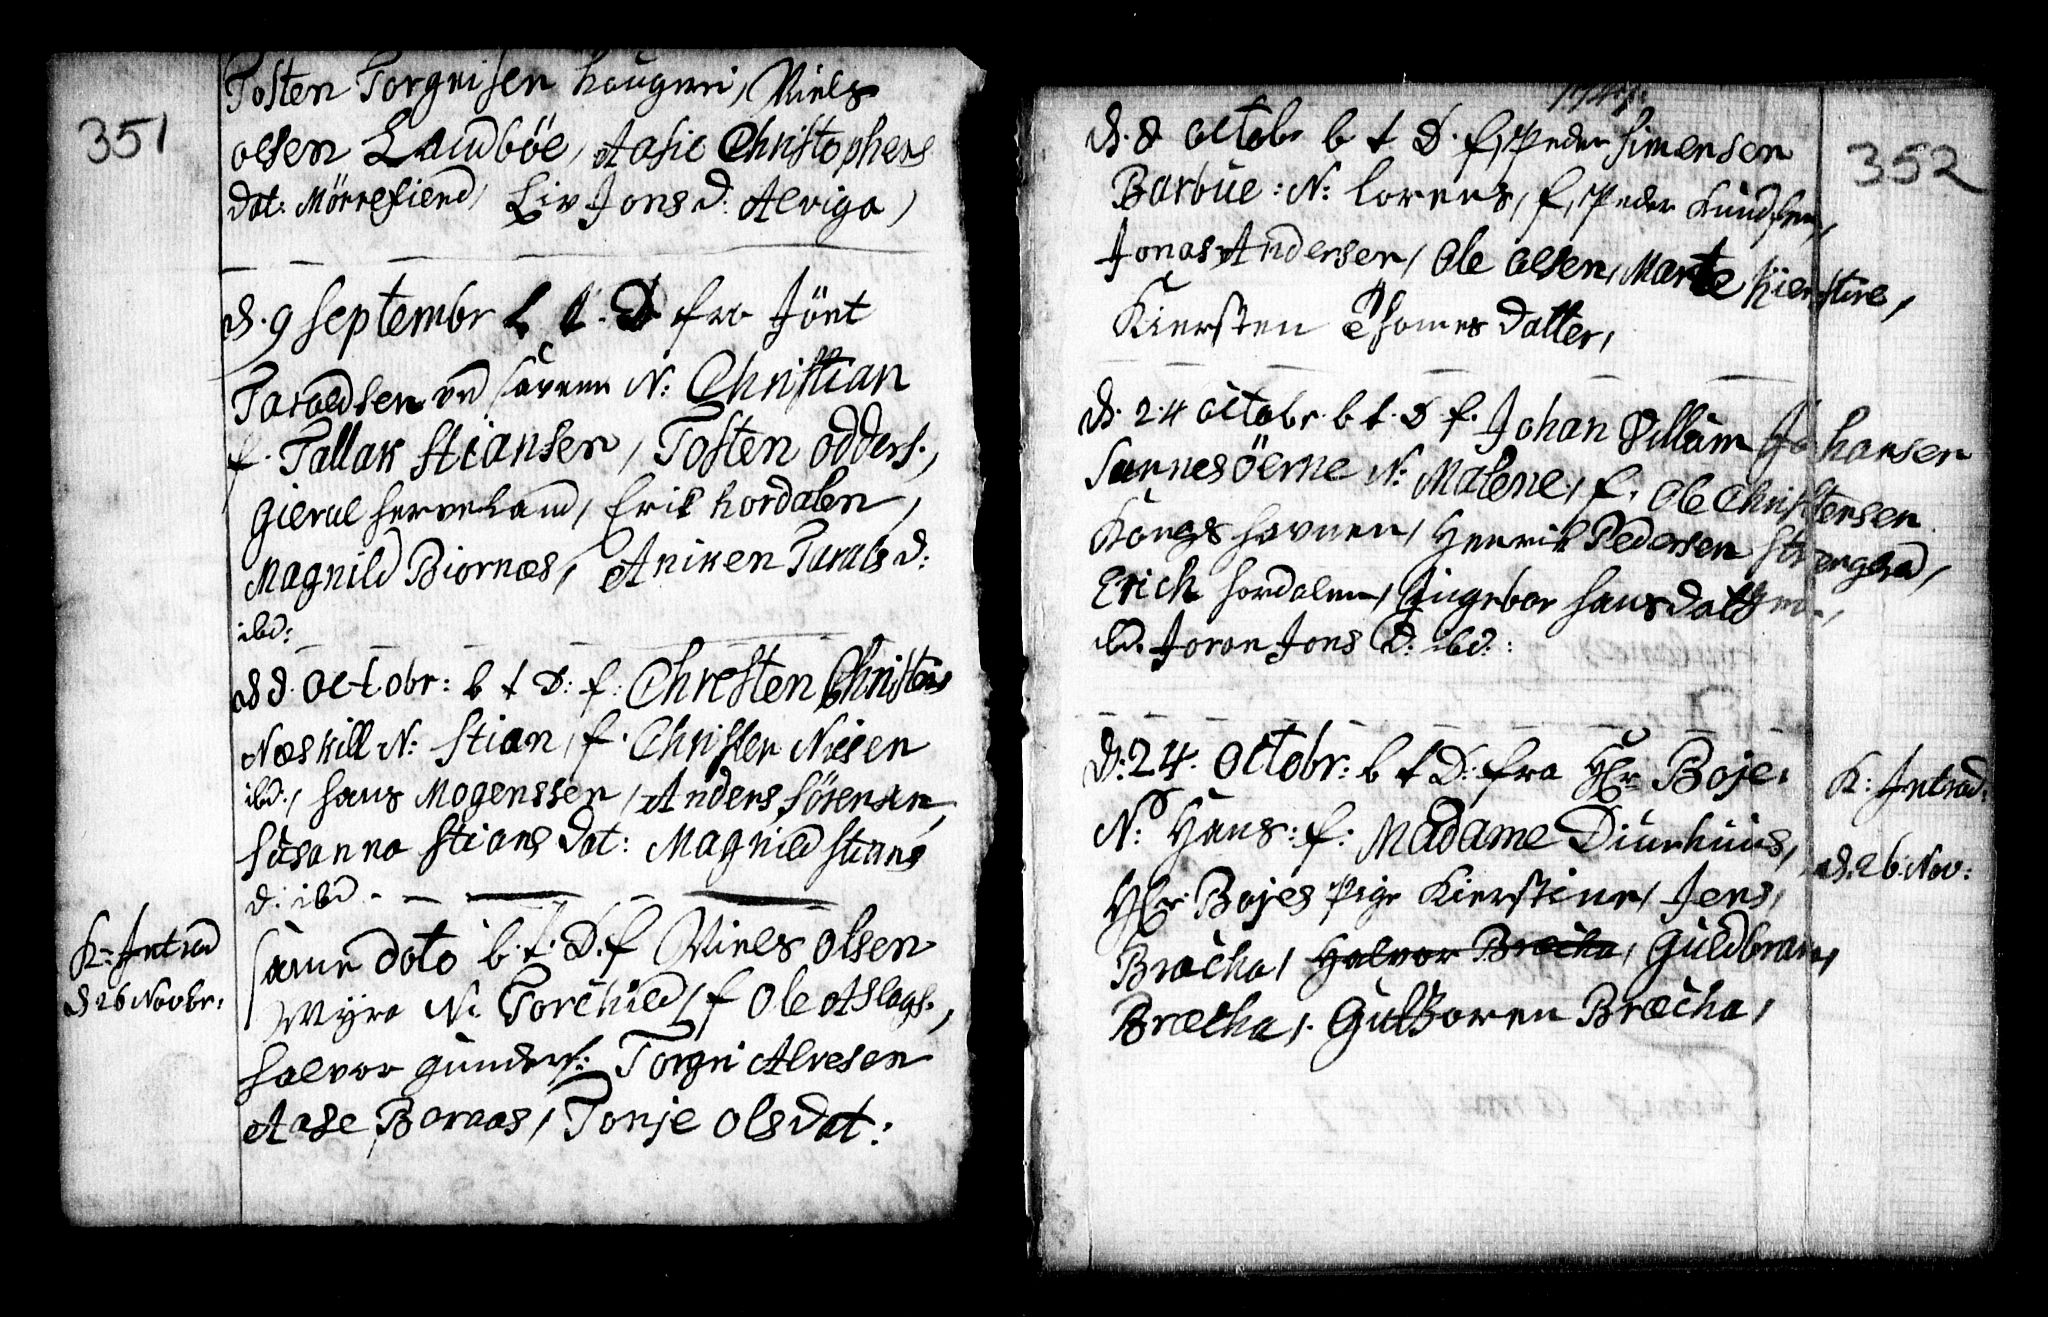 351
Tosten Torgrisen haugrei, Niels
olsen Landböe, Aasie Christophers
dat: Mörrefierd, Liv Jons d: Alviga,
d. 9 septembr b t. D fra Jöret
Taraldsen ved savene N: Christian
f. Tallak Stiansen, Tosten odders.,
gierul herveland, Erik hordalen,
Magnild Biornæs, Aniken Tarals d:
ibd:
d 8. octobr: b t D: f: Chresten Christens
Næskill N: Stian, f. Christen Nilsen
ibd:, hans Mogenssen, Anders Sörensen,
Susanna Stians dat: Magnild Stians
d: ibd.
K: Introd
d 26 Novbr:
same dato b. t. D. f Niels olsen
Myra N: Torchild, f Ole Aslags.,
halvor gunders: Torgri Alvesen
Aase Boraas, Tonje ols dat:
352
d. 8 octobr b t D. f, Peder Simensen
Barbue: N: lorens, f, Peder Knudsen,
Jonas Andersen, Ole olsen, Marte Kierstine,
Kiersten Thomes datter,
d. 24 octobr. b t. D f. Johan Villum Johansen
Sarnesöerne N: Malene, f. Ole Christensen
Kongshavnen, Henrik Pedersen Strengered,
Erich hordalen, Jngebor hans datter
ibd. Joran Jons D: ibd::
d: 24. octobr: b t D: fra Hr Boje.
N: Hans: f. Madame Diurhuus,
Hr: Bojes Pige Kierstine, Jens,
Bræcha, Halvor Bræcha, Guldbran,
Bræcha,. Gulboren Bræcha,
K: Introd:
d. 26. Nov: